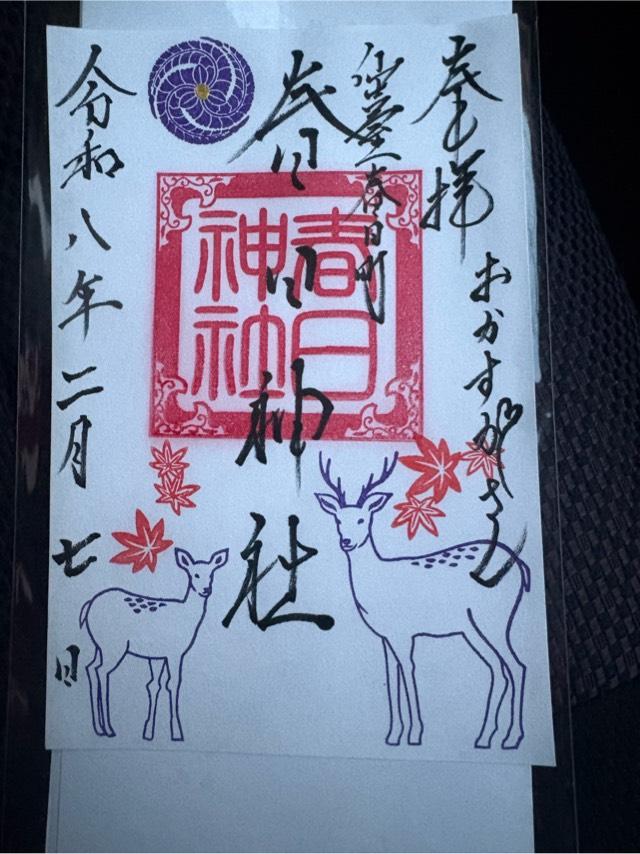 奉拝
おかすがさん
仙臺春日町
春日神社
春日
神社
令和八年二月七日